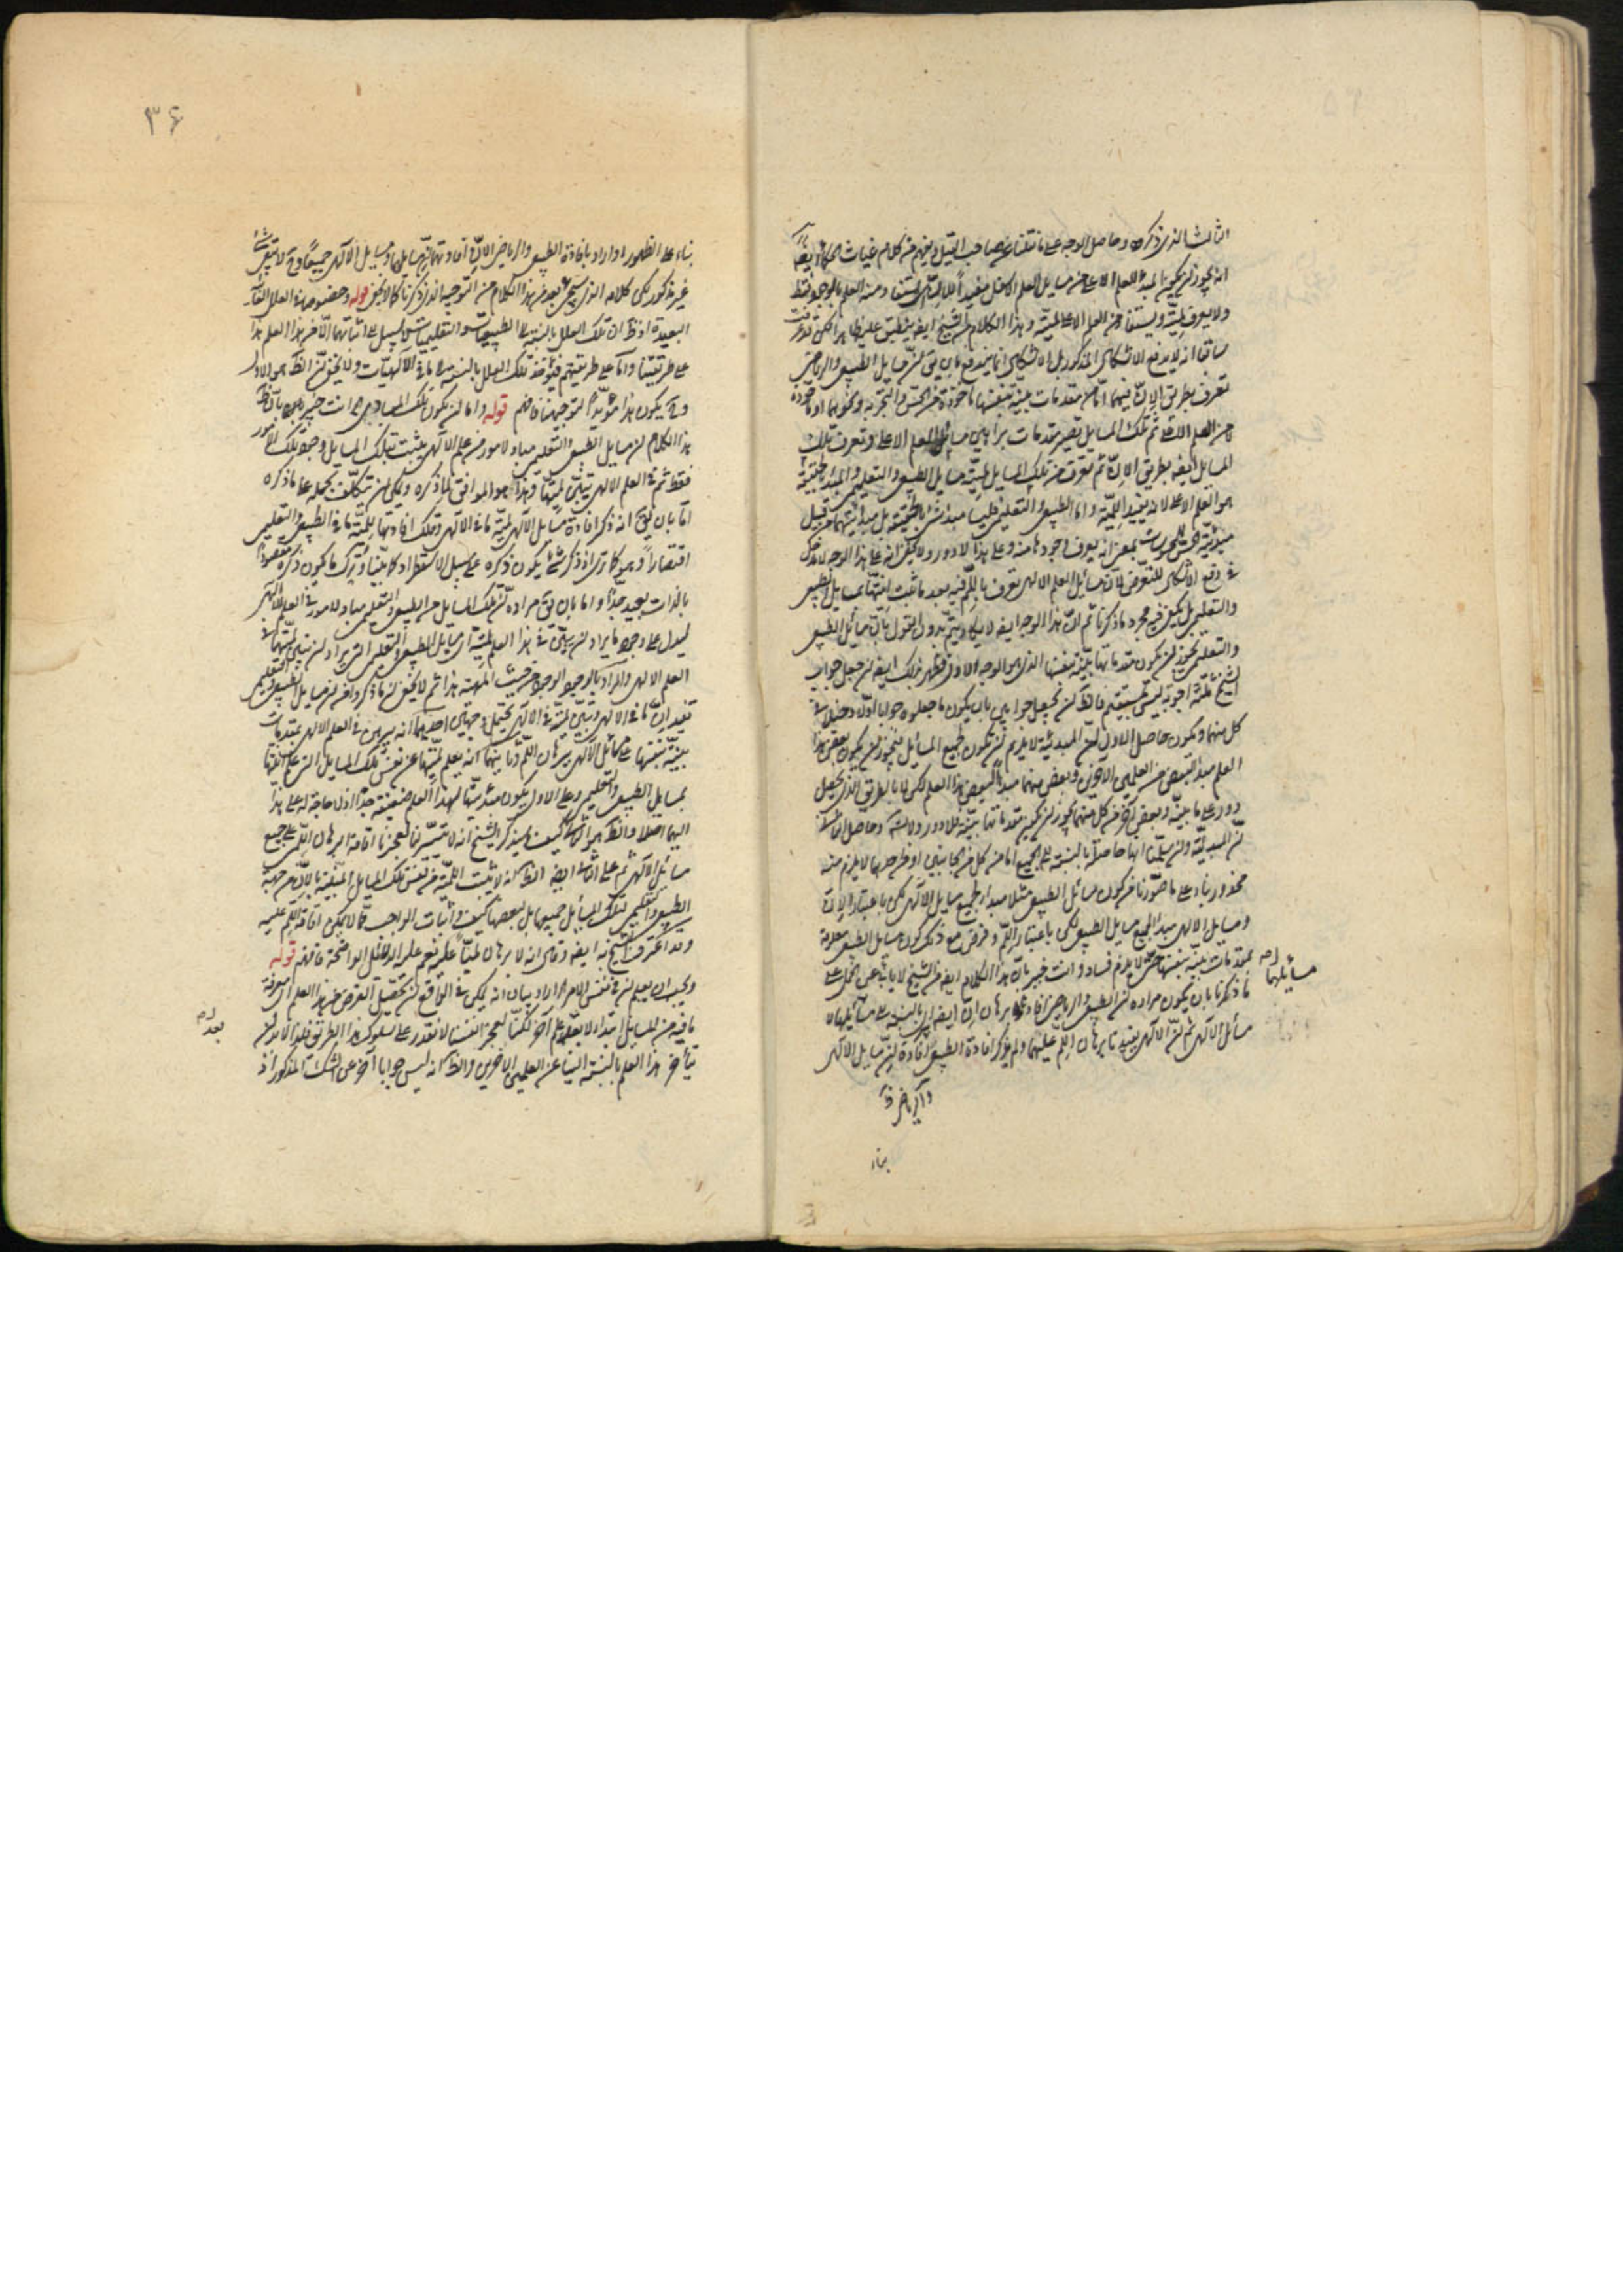 الثالث الذى ذكره وحاصل الوجه على ما نقلنا عن صاحب القيل ويفهم من كلام غياث الحكماء ايضا
انه يجوز ان يكون المبدأ للعلم الاعلى من مسايل العلم الاسفل مفيدا للان
ولا يعرف لميته ويستفاد من العلم الاعلى لميته وهذا الكلام من الشيخ ايضا ينطبق عليه ظاهرا لكن قد عرفت
سابقا انه لا يدفع الاشكال المذكور بل الاشكال انما يندفع بان يق ان مسايل الطبيعى والرياضى
تعرف بطريق الان فيهما اما من مقدمات بينة بنفسها ماخوذة من الحس والتجربة ونحوهما او ماخوذة
من العلم الاعلى ثم تلك المسايل تصير مقدمات براهين مسايل العلم الاعلى وتعرف تلك
المسايل ايضا بطريق الان ثم تعرف من تلك المسايل لمية مسايل الطبيعى والتعليمى والمبدأ حقيقة
هو العلم الاعلى لانه يفيد اللمية واما الطبيعى والتعليمى فليسا مبدئين بالحقيقة بل مبدئيتهما من قبيل
مبدئية الحس للمحسوسات بمعنى انه يعرف وجودها منه وعلى هذا لا دور ولا يخفى انه على هذا الوجه لا دخل
فى دفع الاشكال للتعرض لان مسايل العلم الالهى تعرف باللم فيه بعد ما ثبت انيتها بمسايل الطبيعى
والتعليمى بل يكفى فيه مجرد ما ذكرنا ثم ان هذا الوجه ايضا لا يكاد يتم بدون القول بان مسائل الطبيعى
والتعليمى يجوز ان يكون مقدماتها بينة بنفسها الذى هو الوجه الاول فظهر بذلك ايضا ان جعل جواب
الشيخ ثلثة اجوبة ليس بمستقيم فالظ ان يجعل جوابين بان يكون ما جعلوه جوابا اولا دخيلا فى
كل منهما ويكون حاصل الاول ان المبدئية لا يلزم ان يكون لجميع المسائل فيجوز ان يكون بعض هذا
العلم مبدأ لبعض من العلمين الاخرين وبعض منهما مبدأ لبعض هذا العلم لكن لا بالطريق الذى يحصل
دور على ما بينه وبعض اخر من كل منهما يجوز ان يكون مقدماتها بينة فلا دور ولا تسلسل وحاصل الثانى
ان المبدئية وان سلمنا انها حاصلة بالنسبة الى الجميع اما من كل من الجانبين او من احدهما لا يلزم منه
محذور بناء على ما صورنا من كون مسائل الطبيعى مثلا مبدأ لجميع مسايل الالهى لكن باعتبار الان
ومسايل الالهى مبدأ لجميع مسايل الطبيعى لكن باعتبار اللم وفرض مع ذلك كون مسايل الطبيعى معلومة
بمقدمات بينة بنفسها حتى لا يلزم فساد وانت خبير بان هذا الكلام ايضا من الشيخ لا ياباه عن الحمل على
ما ذكرنا بان يكون مراده ان الطبيعى والرياضى افادا برهان ان ايضا بالنسبة الى مسائلهما لا
مسائل الالهى ثم ان الالهى يفيدنا برهان اللم عليهما ولم يذكر افادة الطبيعى افادة ان مسايل الالهى
مسائلهما
والرياضى
بناء
۳۶
بناء على الظهور او اراد بافادة الطبيعى والرياضى الان افادتهما ان مسايلهما ومسايل الالهى جميعا وح لا يبقى شئ
غير مذكور لكن كلامه الذى سيجئ بعد من هذا الكلام من التوجيه الذى ذكرنا كما لا يخفى قوله وخصوصا هذه العلل الغائية
البعيدة اذ ظ ان تلك العلل بالنسبة الى الطبيعيات والتعليميات لا سبيل الى اثباتها الا من هذا العلم هذا
على طريقتنا واما على طريقتهم فيؤخذ تلك العلل بالنسبة الى ما فى الالهيات ولا يخفى ان الظ هو الاول
وح يكون هذا مؤيدا لتوجيهنا فافهم قوله واما ان يكون تلك المبادى انت خبير بان ظ
هذا الكلام ان مسايل الطبيعى والتعليمى مباد لامور من علم الالهى يثبت بتلك المسايل وجود تلك الامور
فقط ثم فى العلم الالهى يتبين لميتها وهذا هو الموافق لما ذكره ويمكن ان يتكلف بحمله على ما ذكره
اما بان يق انه ذكر افادة مسايل الالهى لمية ما فى الالهى وترك افادتها للمية ما فى الطبيعى والتعليمى
اقتصارا وهو كما ترى اذ ذكر شئ يكون ذكره على سبيل الاستطراد كما بينا وترك ما يكون ذكره مقصودا
بالذات بعيد جدا واما بان يق مراده ان تلك المسايل من الطبيعى والتعليمى مباد لامور فى العلم الالهى
ليدل على وجود ما يراد ان يبين فى هذا العلم لميته اى مسايل الطبيعى والتعليمى التى يراد ان يبين لميتها فى
العلم الالهى والمراد بالوجود الوجود من حيث اللمية هذا ثم لا يخفى ان ما ذكره انه ان مسايل الطبيعى والتعليمى
تفيد ان ما فى الالهى وتبين لميته فى الالهى يحتمل وجهين احدهما انه يبرهن فى العلم الالهى بمقدمات
بينة بنفسها على مسائل الالهى ببرهان اللم وثانيهما انه يعلم لميتها عن نفس تلك المسايل التى علم انيتها
بمسايل الطبيعى والتعليمى وعلى الاول يكون مبدئيتها لهذا العلم ضعيفة جدا اذ لا حاجة له على هذا
اليها اصلا والظ هو الثانى كيف وسيذكر الشيخ انه لا يتيسر لنا لعجزنا اقامة البرهان اللمى على جميع
مسائل الالهى ثم على الثانى ايضا الظ انه لا يثبت اللمية من نفس تلك المسايل المبينة بالان من جهة
الطبيعى والتعليمى لتلك المسايل جميعها بل لبعضها كيف واثبات الواجب مما لا يمكن اقامة اللم عليه
وقد اعترف الشيخ به ايضا وقال انه لا برهان لميا عليه نعم عليه الدلائل الواضحة فافهم قوله
ويجب ان يعلم ان فى نفس الامر اراد بيان انه يمكن فى الواقع ان تحصيل الغرض من هذا العلم اى معرفة
ما فيه من المسايل ابتداء لا بعد علم آخر لكنا لعجز انفسنا لا نقدر على سلوك هذا الطريق فلذا لابد ان
يتأخر هذا العلم بالنسبة الينا عن العلمين الاخرين والظ انه ليس جوابا آخر عن الشك المذكور اذ
بعد